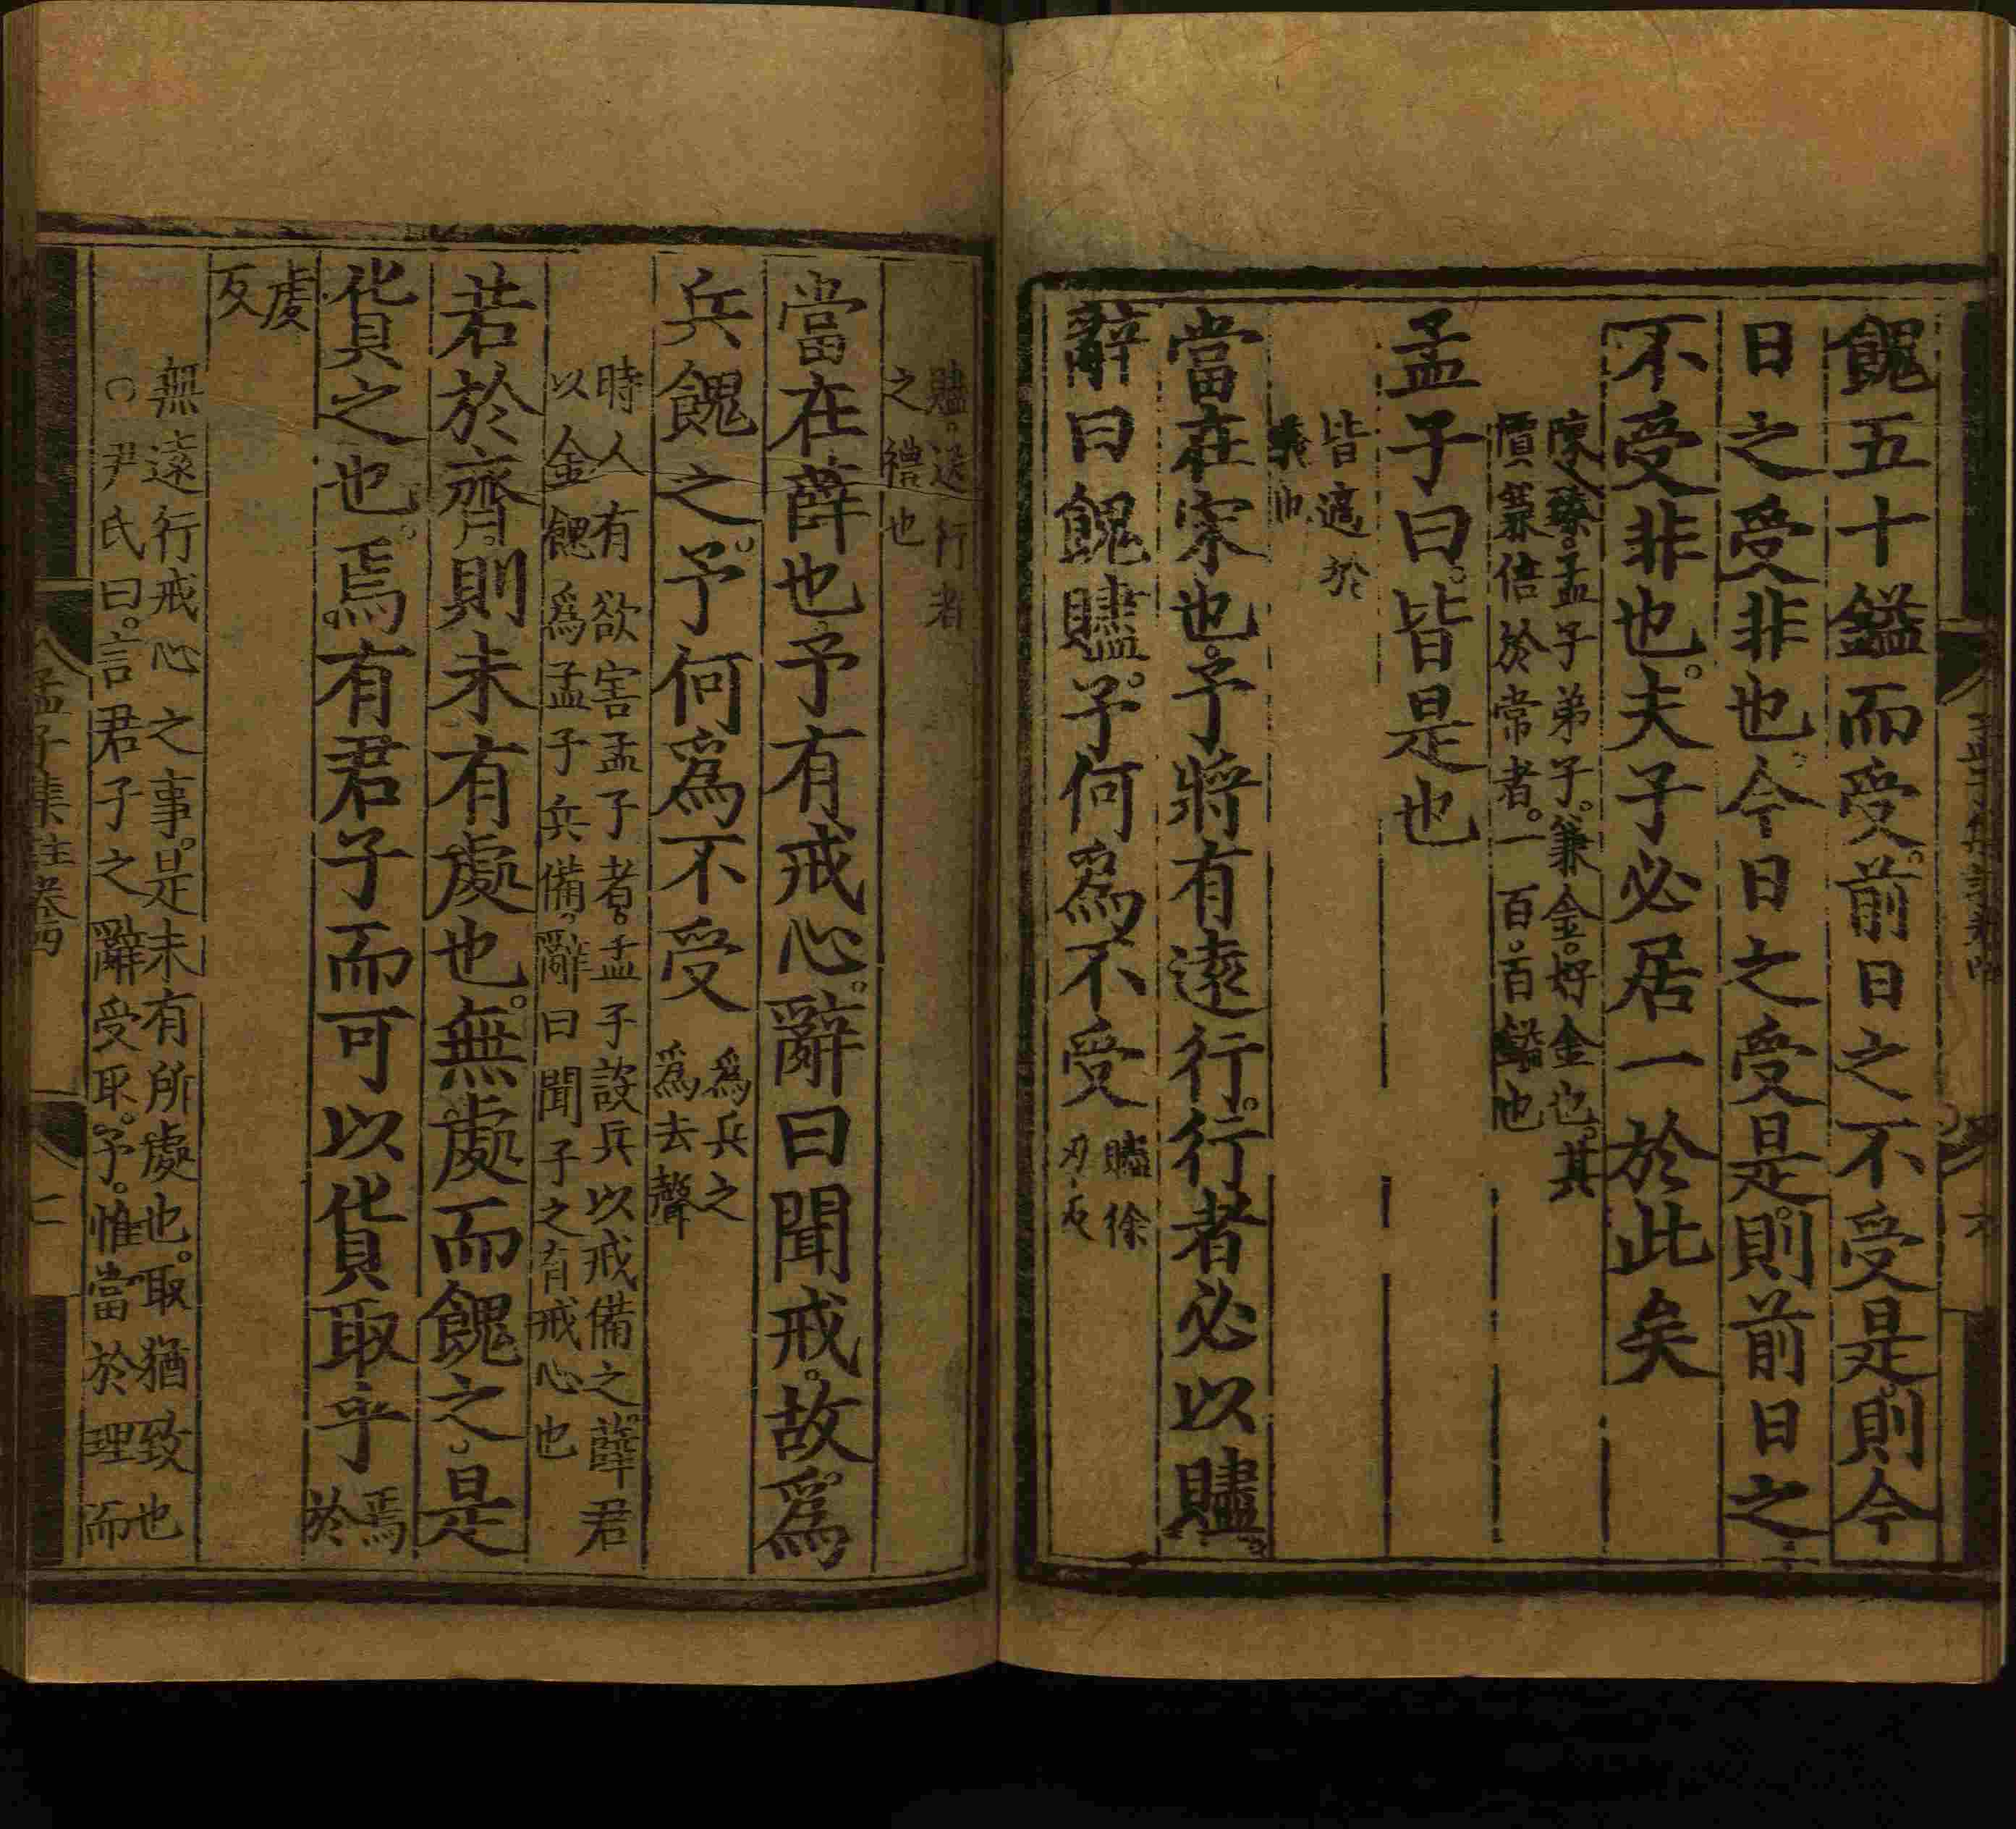 餽五十鎰而受前日之不受是則今
日之受非也今日之受是則前日之
不受非也夫子必居一於此矣
陳臻孟子弟子兼金好金也其
價兼倍於常者一百百鎰也
孟子曰皆是也
皆適於
義也
當在宋也予將有遠行行者必以贐
辭曰餽贐予何爲不受
贐徐
刃反
贐送行者
之禮也
當在薛也予有戒心辭曰聞戒故爲
兵餽之予何爲不受
爲兵之
爲去聲
時人有欲害孟子者孟子設兵以戒備之薛君
以金餽爲孟子兵備辭曰聞子之有戒心也
若於齊則未有處也無處而餽之是
貨之也焉有君子而可以貨取乎
焉
於
虔
反
無遠行戒心之事是未有所處也取猶致也
○尹氏曰言君子之辭受取予惟當於理而
孟子集註卷四
二